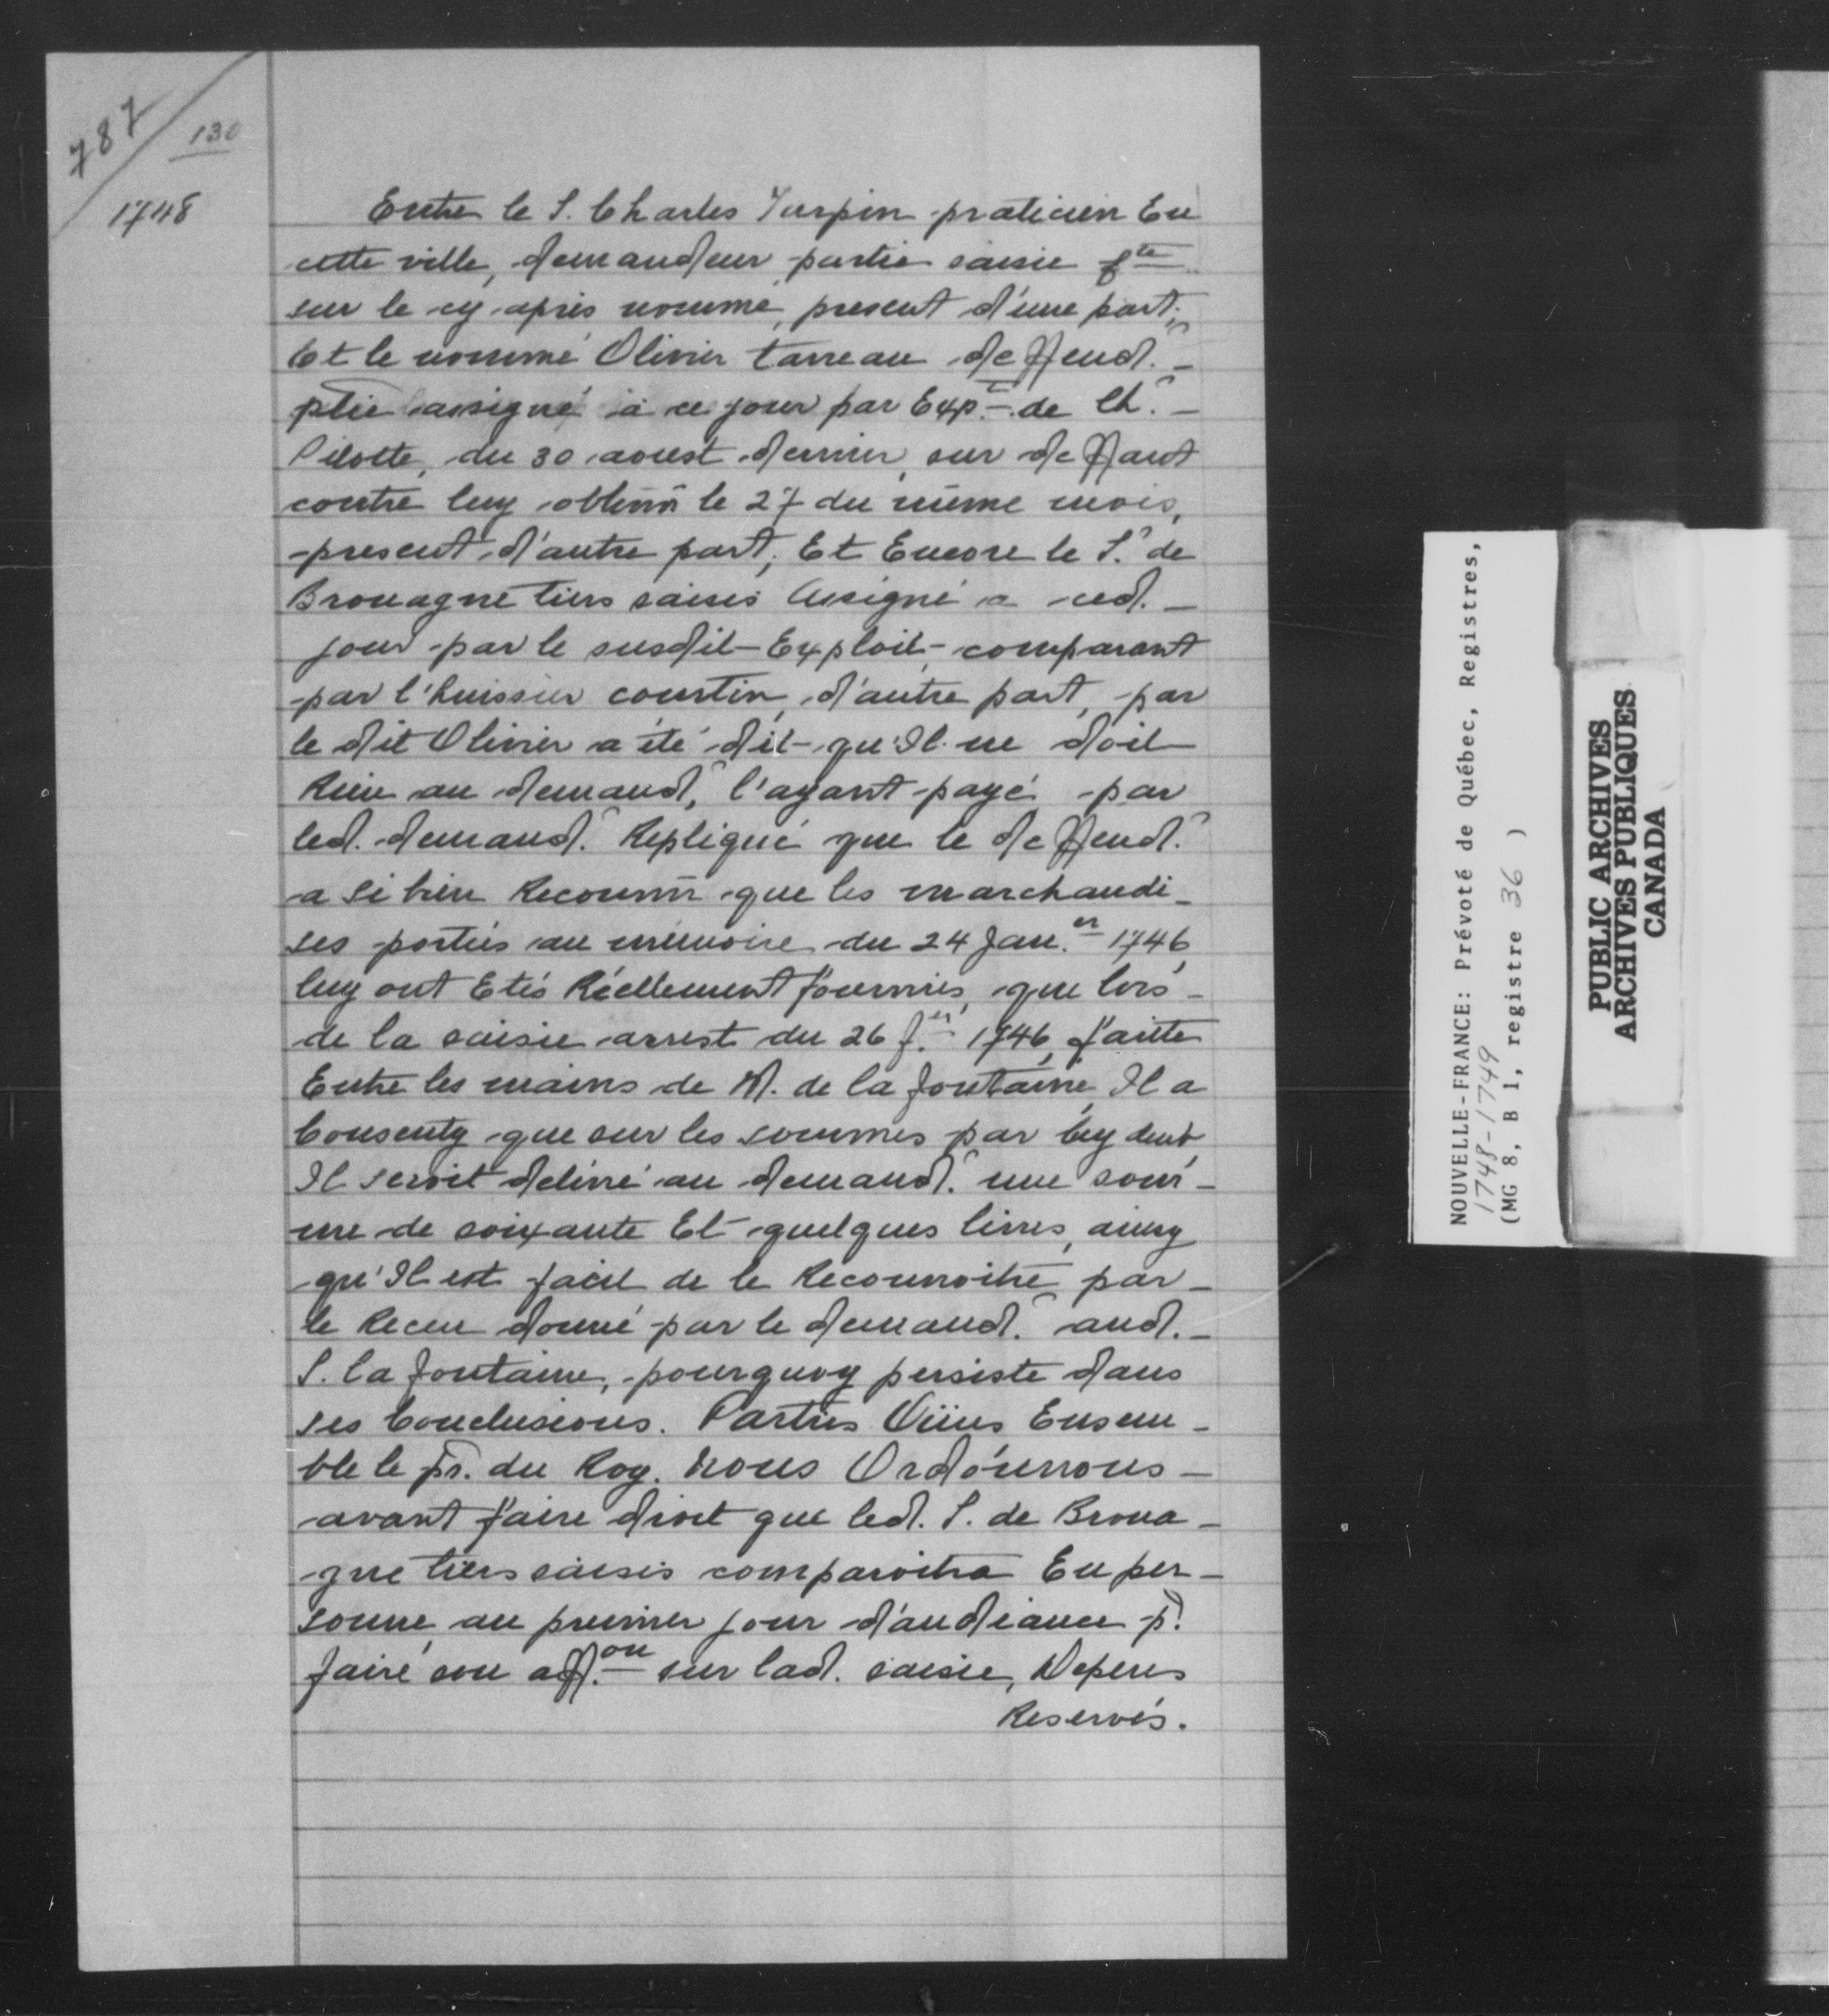 787
130
1748
Entre le S. Charles Turpin praticien En
cette ville, demandeur partie saisie fte
sur le cy après nommé, present d'une part;
Et le nommé Olivier tarreau deffend.r -
ptie assigné à ce jour par Exp.t de Ch.s -
Pilotte, du 30 aoust dernier, sur deffaut
contre luy obtenû le 27 du même mois,
present d'autre part, Et Encore le S.r de
Brouague tiers saisis Assigné a ced. -
jour par le susdit Exploit - comparant
par l'huissier courtin, d'autre part, par
le dit Olivier a été dit qu'Il ne doit
Rien au demand.r, l'ayant payé, par
led. demand.r Repliqué que le deffend.r
a si bien Reconnû que les marchandi-
ses portées au mémoire du 24 Jan.er 1746
luy ont Etés Réellement fournies, que lors -
de la saisie arrest du 26 f.er 1746, faite
Entre les mains de M. de la fontaine, Il a
Consenty que sur les sommes par luy deub
Il seroit delivré au demand.r une som-
me de soixante Et quelques livres, ainsy
qu'Il est facil de le Reconnoitre par -
le Receu donné par le demand.r aud. -
S. la fontaine, pourquoy persiste dans
ses Conclusions. Parties Oüies Ensem-
ble le pr. du Roy. Nous Ordonnons -
avant faire droit que led. S. de Broua-
gue tiers saisis comparoitra En per-
sonne au premier jour d'audiance p.r
faire son aff.on sur lad. saisie, Depens
Reservés.
NOUVELLE-FRANCE: Prévoté de Québec, Registres,
1748-1749
(MG 8, B 1, registre 36 )
PUBLIC ARCHIVES
ARCHIVES PUBLIQUES
CANADA